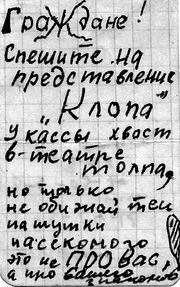 Граждане!
Спешите на
представление
"Клопа"
у кассы хвост
в театре
толпа,
но только
не обижайтеся
на шутки
насекомого
это не про вас,
а про вашего
знакомого